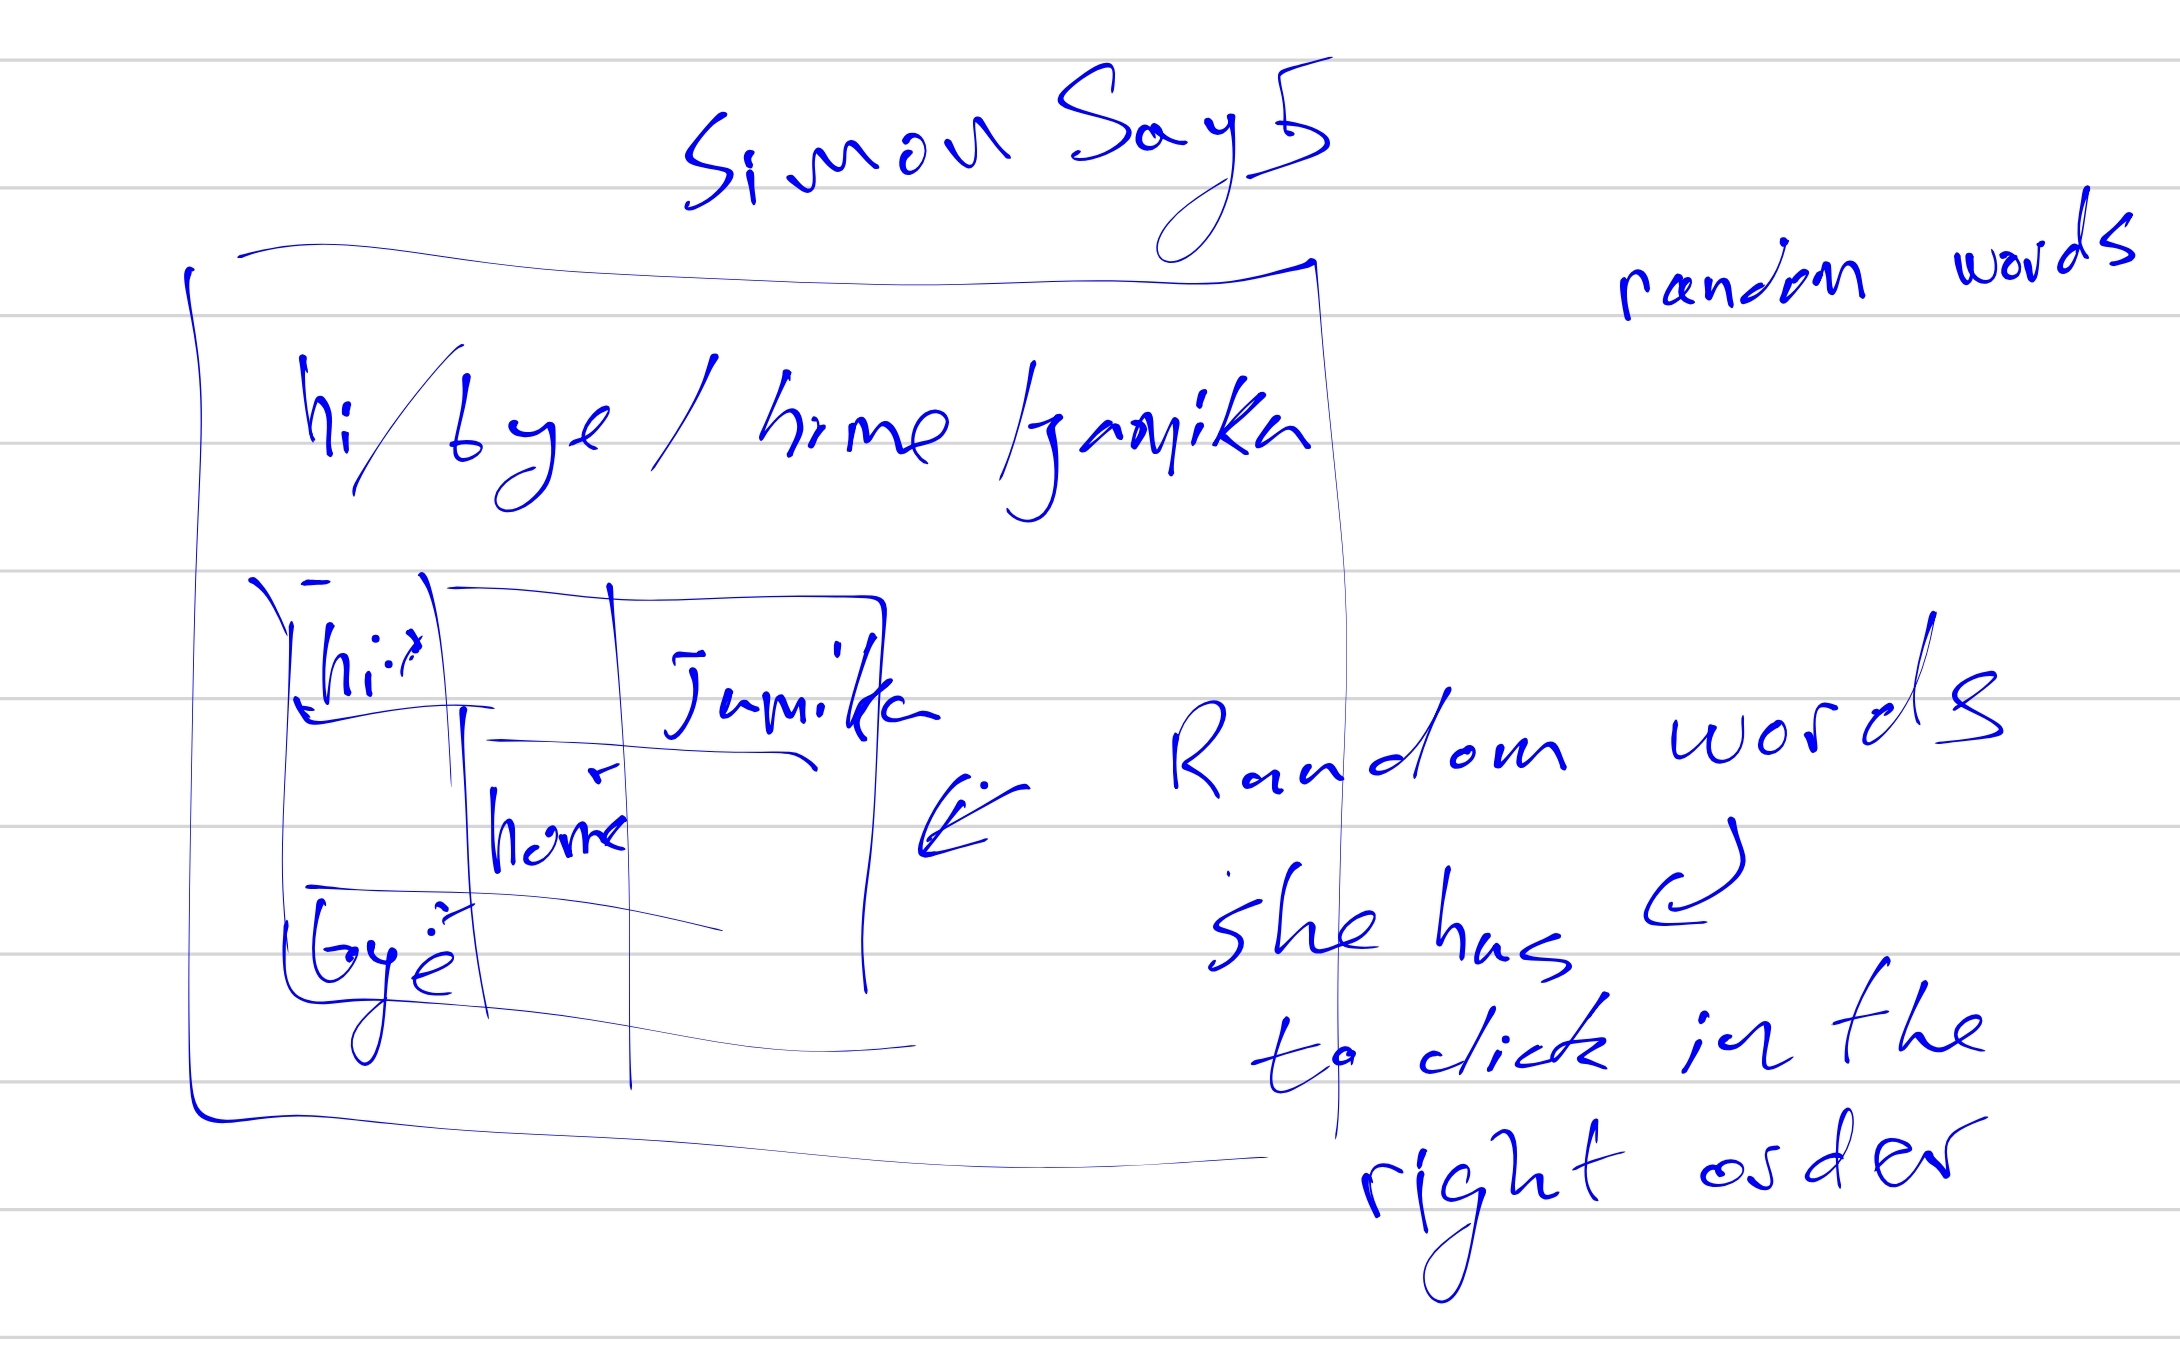 Simon Says
random words
hi / bye / home / jamika
hi
Jamika
home
bye
Random words
she has
to click in the
right order